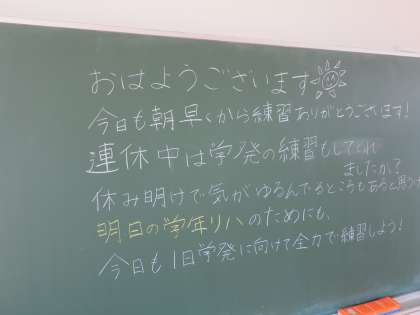 おはようございます
今日も朝早くから練習ありがとうございます!
連休中は学発の練習もしてくれ
ましたかね
休み明けで気がゆるんでるところもあると思うけ
明日の学年リハのためにも、
今日も1日学発に向けて全力で練習しよう!